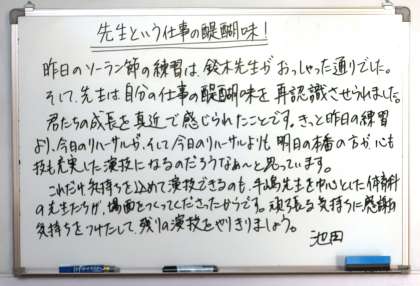 先生という仕事の醍醐味!
昨日のソーラン節の練習は、鈴木先生がおっしゃった通りでした。
そして、先生は自分の仕事の醍醐味を再認識させられました。
君たちの成長を真近で感じられたことです。きっと昨日の練習
より、今日のリハーサルが、そして今日のリハーサルよりも明日の本番の方が、心も
技も充実した演技になるのだろうなぁ〜と思っています。
これだけ気持ちを込めて演技できるのも、平嶋先生を中心とした体育科
の先生たちが、場面をつくってくださったからです。頑張る気持ちに感謝の
気持ちをつけたして、残りの演技をやりきりましょう。
池田